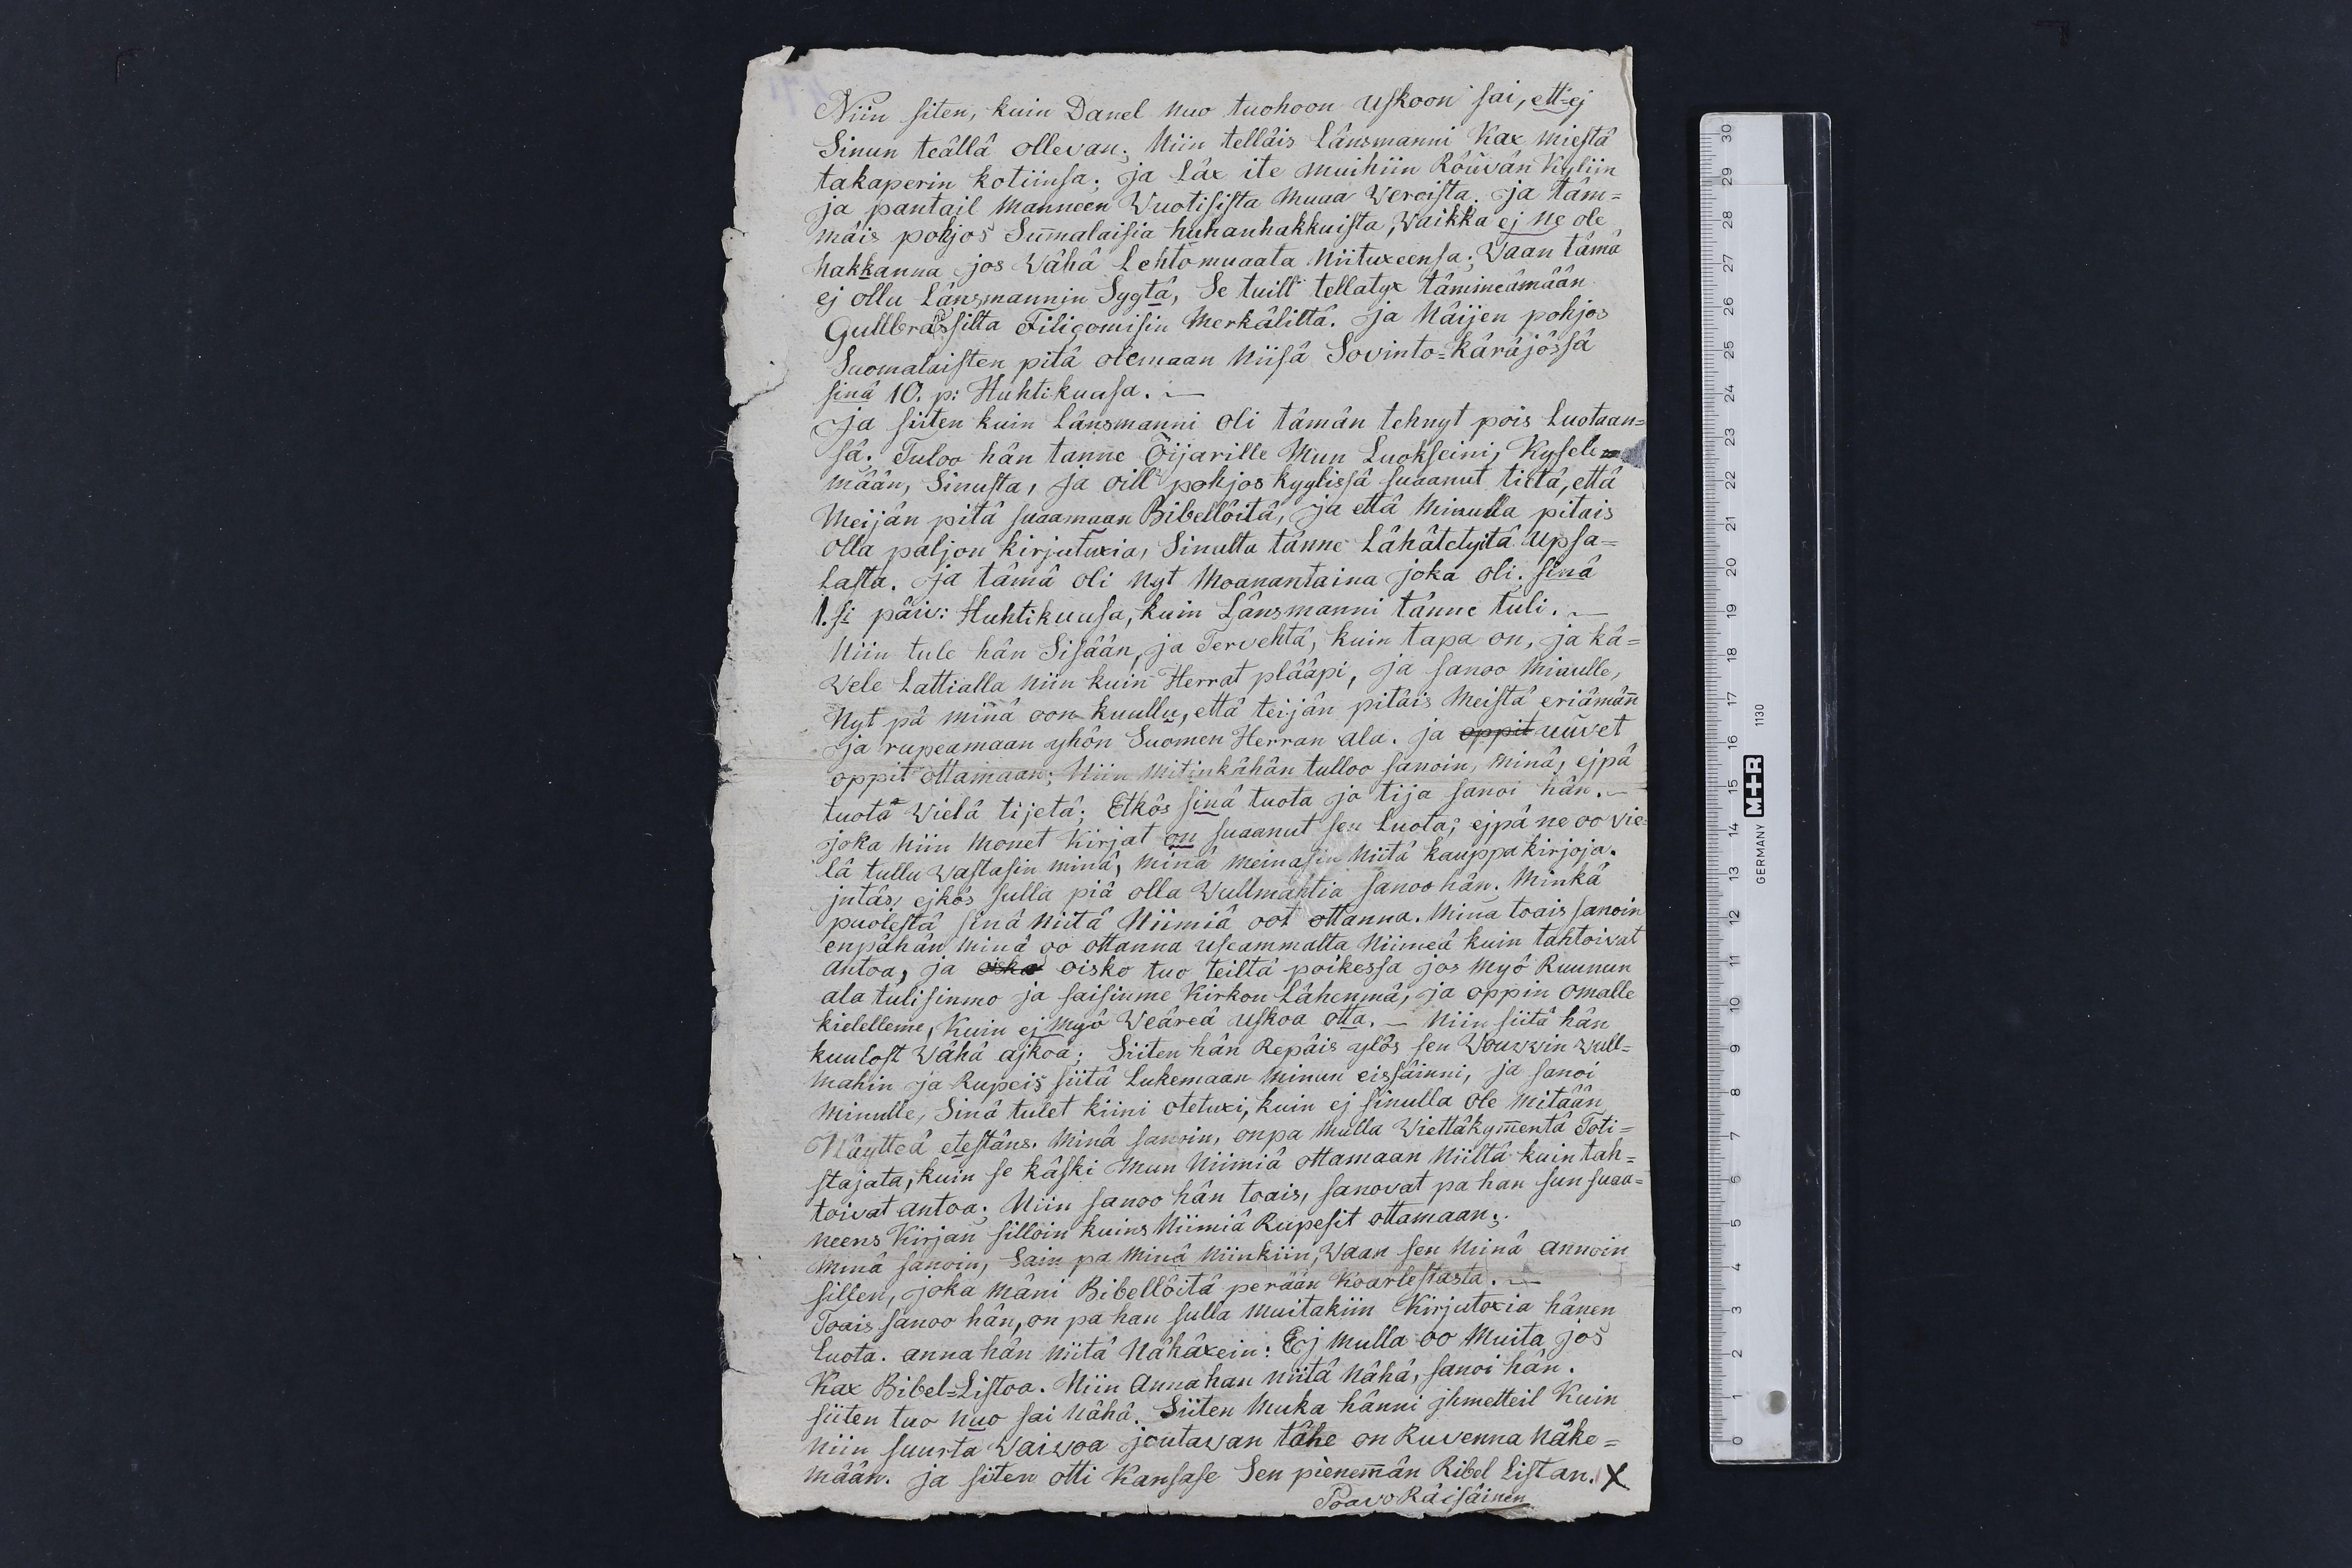 Niin siten, kuin Danel nuo tuohoon uskoon sai, ett-ej
Sinun teällä ollevan; Niin telläis Länsmanni Kax miestä
takaperin kotiinsa; ja Läx ite muihiin Röuvän Kyliin
ja pantail Manneen Wuotisista Muaa Veroista. ja täm=
mäis pohjos Sum̄alaisia huhanhakkuista, Vaikka ej ne ole
hakkanna jos Vähä Lehtomuaata Niituxeensa; Vaan tämä
ej ollu Länsmannin Sygtä, Se tuill tellatyx tämineämään
Gullbrässilta Filigomisin Merkäliltä. ja Näijen pohjos
Suomalaisten pitä olemaan Niisä Sovinto=käräjössä
sinä 10. p: Huhtikuusa. —
ja siiten kuin Länsmanni oli tämän tehnyt pois Luotaan=
sä. Tuloo hän tänne Öijarille Mun Luokseini, Kysele
mään, Sinusta, ja oill pohjos kyylissä suaanut tietä, että
Meijän pitä suaamaan Bibellöitä, ja että Minulla pitais
olla paljon kirjutuxia, Sinulta tänne Lähätetyitä Upsa=
lasta. ja tämä oli Nyt Moanantaina joka oli. sinä
1.si päiv: Huhtikuusa, kuin Länsmanni tänne tuli. —
Niin tule hän Sisään, ja Tervehtä, kuin tapa on, ja kä=
vele Lattialla Niin kuin Herrat plääpi, ja sanoo Minulle,
Nyt pä minä oon kuullu, että teijän pitäis Meistä eriämän̄
ja rupeamaan yhön Suomen Herran ala. ja oppit uuvet
oppit ottamaan; Niin Mitinkähän tulloo sanoin, minä, ejpä
tuota Vielä tijetä; Etkös sinä tuota jo tija sanoi hän. —
joka Niin Monet Kirjat on suaanut sen Luota; ejpä ne oo vie=
lä tullu Vastasin minä, minä meinasin Niitä kauppakirjoja.
jutäs, ejkös sulla piä olla Vullmahtia sanoo hän. Minkä
puolesta sinä Niitä Niimiä oot ottanna. Minä toais sanoin
enpähän minä oo ottanna useammalta Niimeä kuin tahtoivat
antoa, ja oisko oisko tuo teiltä poikessa jos Myö Ruunun
ala tulisinmo ja saisinme Kirkon Lähenmä, ja oppin omalle
kielelleme, Kuin ej Myö Veäreä Uskoa otta. — Niin siitä hän
kuulost Vähä ajkoa; Siiten hän Repäis ylös sen Vouvvin vull=
mahin ja Rupeis siitä Lukemaan Minun eissäinni, ja sanoi
Minulle, Sinä tulet kiini otetuxi, kuin ej sinulla ole mitään
Näytteä etestäns. Minä sanoin, onpa Mulla Viettäkym̄entä Toti=
stajata, kuin se käski Mun Niimiä ottamaan Niiltä kuin tah=
toivat antoa; Niin sanoo hän toais, sanovat pa han sun suaa=
neens Kirjan silloin kuins Niimiä Rupesit ottamaan;.
Minä sanoin, Sain pa Minä Niinkiin, Vaan sen Minä annoin
sillen, joka Mäni Bibellöitä perään Koarlestasta. —
Toais sanoo hän, on pa han sulla Muitakiin Kirjutoxia hänen
Luota. anna hän Niitä Nähäxein: Ej Mulla oo Muita jos
Kax Bibel=Listoa. Niin Annahan niitä Nähä, sanoi hän.
siiten tuo nuo sai Nähä. Siiten Muka hänni jhmetteil Kuin
Niin suurta Vaivoa joutavan tähe on Ruvenna Näke=
mään. ja siiten otti Kansase Sen pienem̄än Bibel Listan. X
Poavo Räisäinen